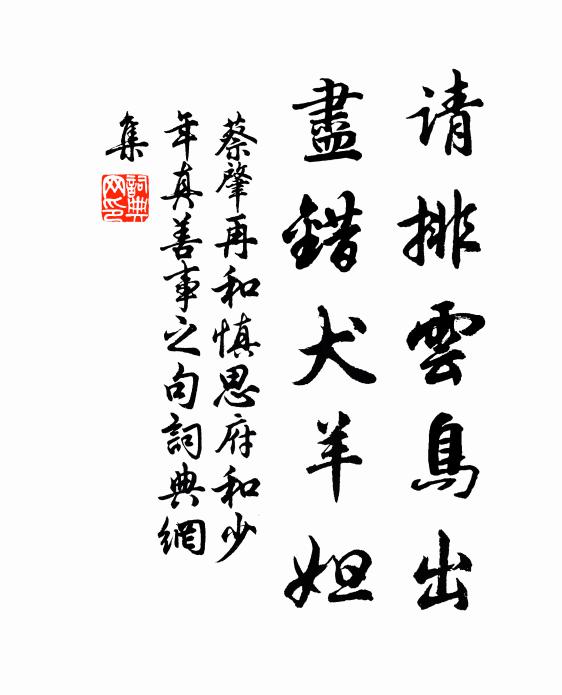 请排雲鳥出
盡錯犬羊妲
蔡肇再和慎思府和少
年真善事之句詞典網
集
詞典网印